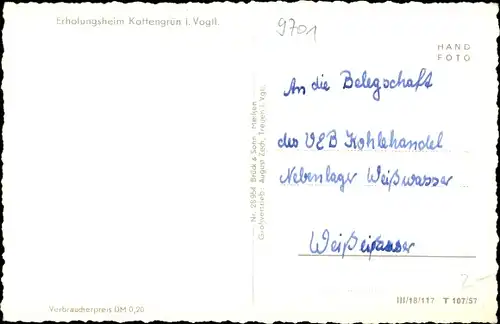 Erholungsheim Kottengrün i. Vogtl.
9701
HAND
FOTO
An die Belegschaft
des VEB Kohlehandel
Nebenlager Weißwasser
Weißeiasser
Nr. 28954 Brück & Sohn, Meißen
Großvertrieb: August Zach, Treuen i. Vgtl.
2-
Verbraucherpreis DM 0,20
III/18/117 T 167/57